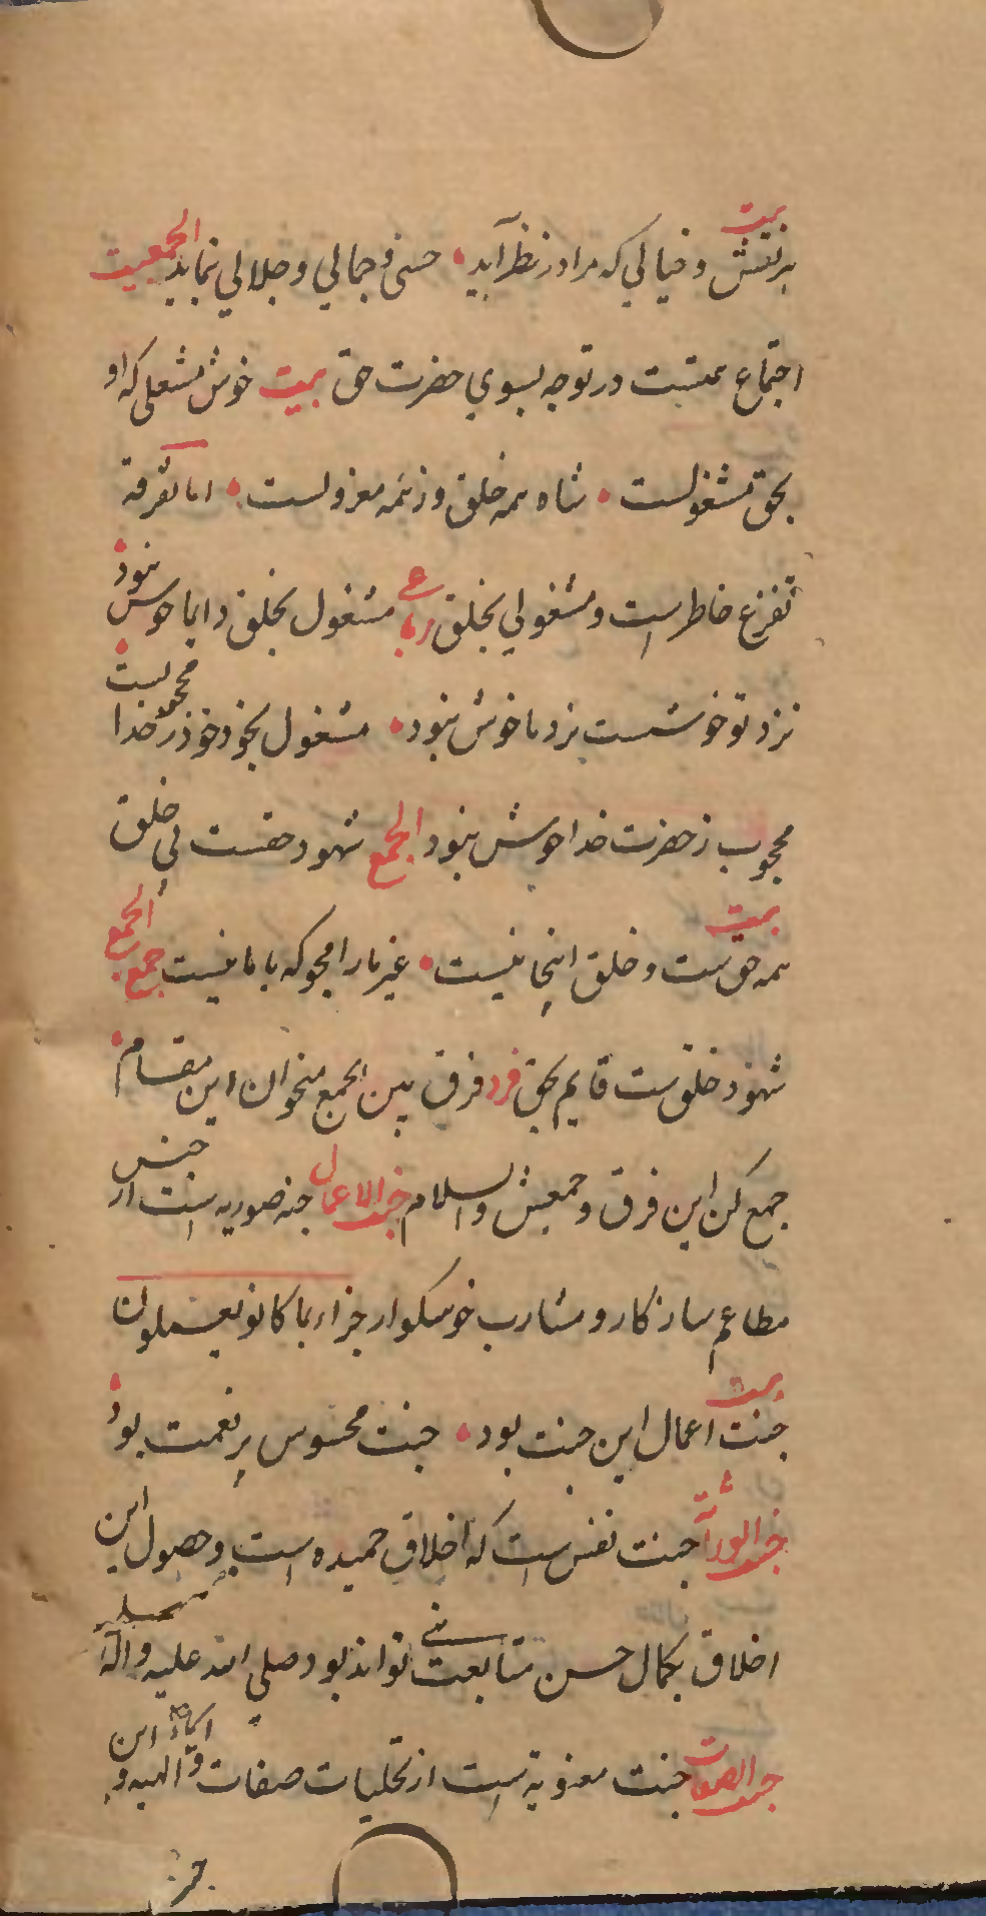 بیت
هر نقش و خیالی که مرا در نظر آید حسنی و جمالی و جلالی نماید الجمعیت
اجتماع همتست در توجه بسوی حضرت حق بیت خوش مشغلی که او
بحق مشغولست شاه همه خلق وز همه معزولست اما تفرقه
تفزع خاطر است و مشغولی بخلق رباعی مشغول بخلق دایما خوش نبود
نزد تو خوشست نزد ما خوش نبود مشغول بخود خود ز خدا محجوبست
محجوب ز حضرت خدا خوش نبود الجمع شهود حقست بی خلق
بیت
همه حق است و خلق اینجا نیست غیر ما را مجو که با ما نیست جمع الجمع
شهود خلق است قایم بحق فرد فرق بین الجمع میخوان این مقام
جمع کن این فرق و جمعیش والسلام جنة الاعمال جنة صوریه است از جنس
مطاعم سازکار و مشارب خوشکوار جزاء بما کانو یعملون
بیت
جنت اعمال این جنت بود جنت محسوس پر نعمت بود
جنة الوراثة جنت نفس است که اخلاق حمیده است و حصول این
اخلاق بکمال حسن متابعت نبی تواند بود صلی الله علیه وآله
جنة الصفات جنت معنویة است از تجلیات صفات و اسماء الهیه و این